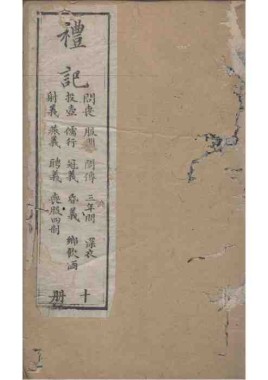 禮記
問喪 服問 間傳 三年問 深衣
投壺 儒行 冠義 昏義 鄉飲酒
射義 燕義 聘義 喪服四制
十冊